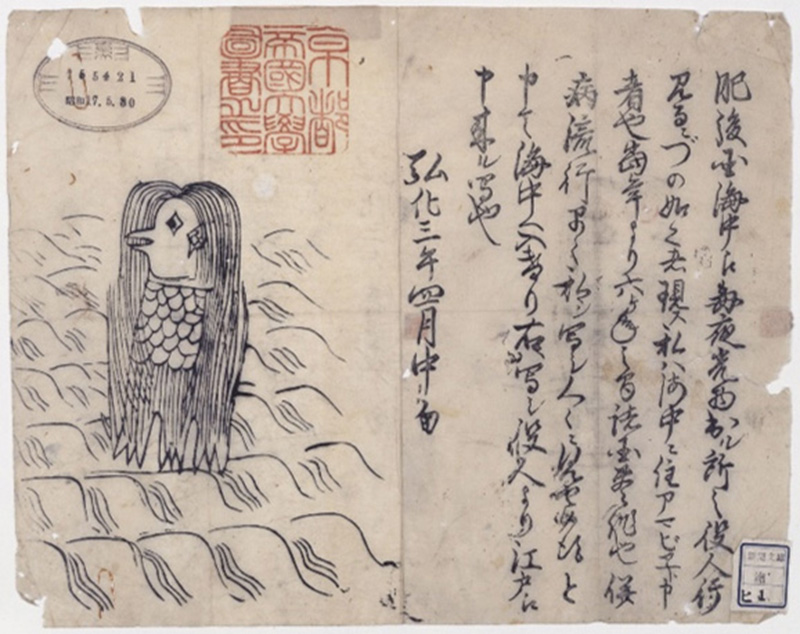 肥後国海中江毎夜光物出ル所之役人行
見るニづの如く者現ス私ハ海中ニ住アマビヱト申
者也当年より六ヶ年之間諸国豊作也併
病流行早々私シ写シ人々ニ見セ候得と
申て海中へ入けり右写シ役人より江戸江
申来ル写也
弘化三年四月中旬
京都
帝國大學
圖書之印
昭和17.5.30
ヒ 1